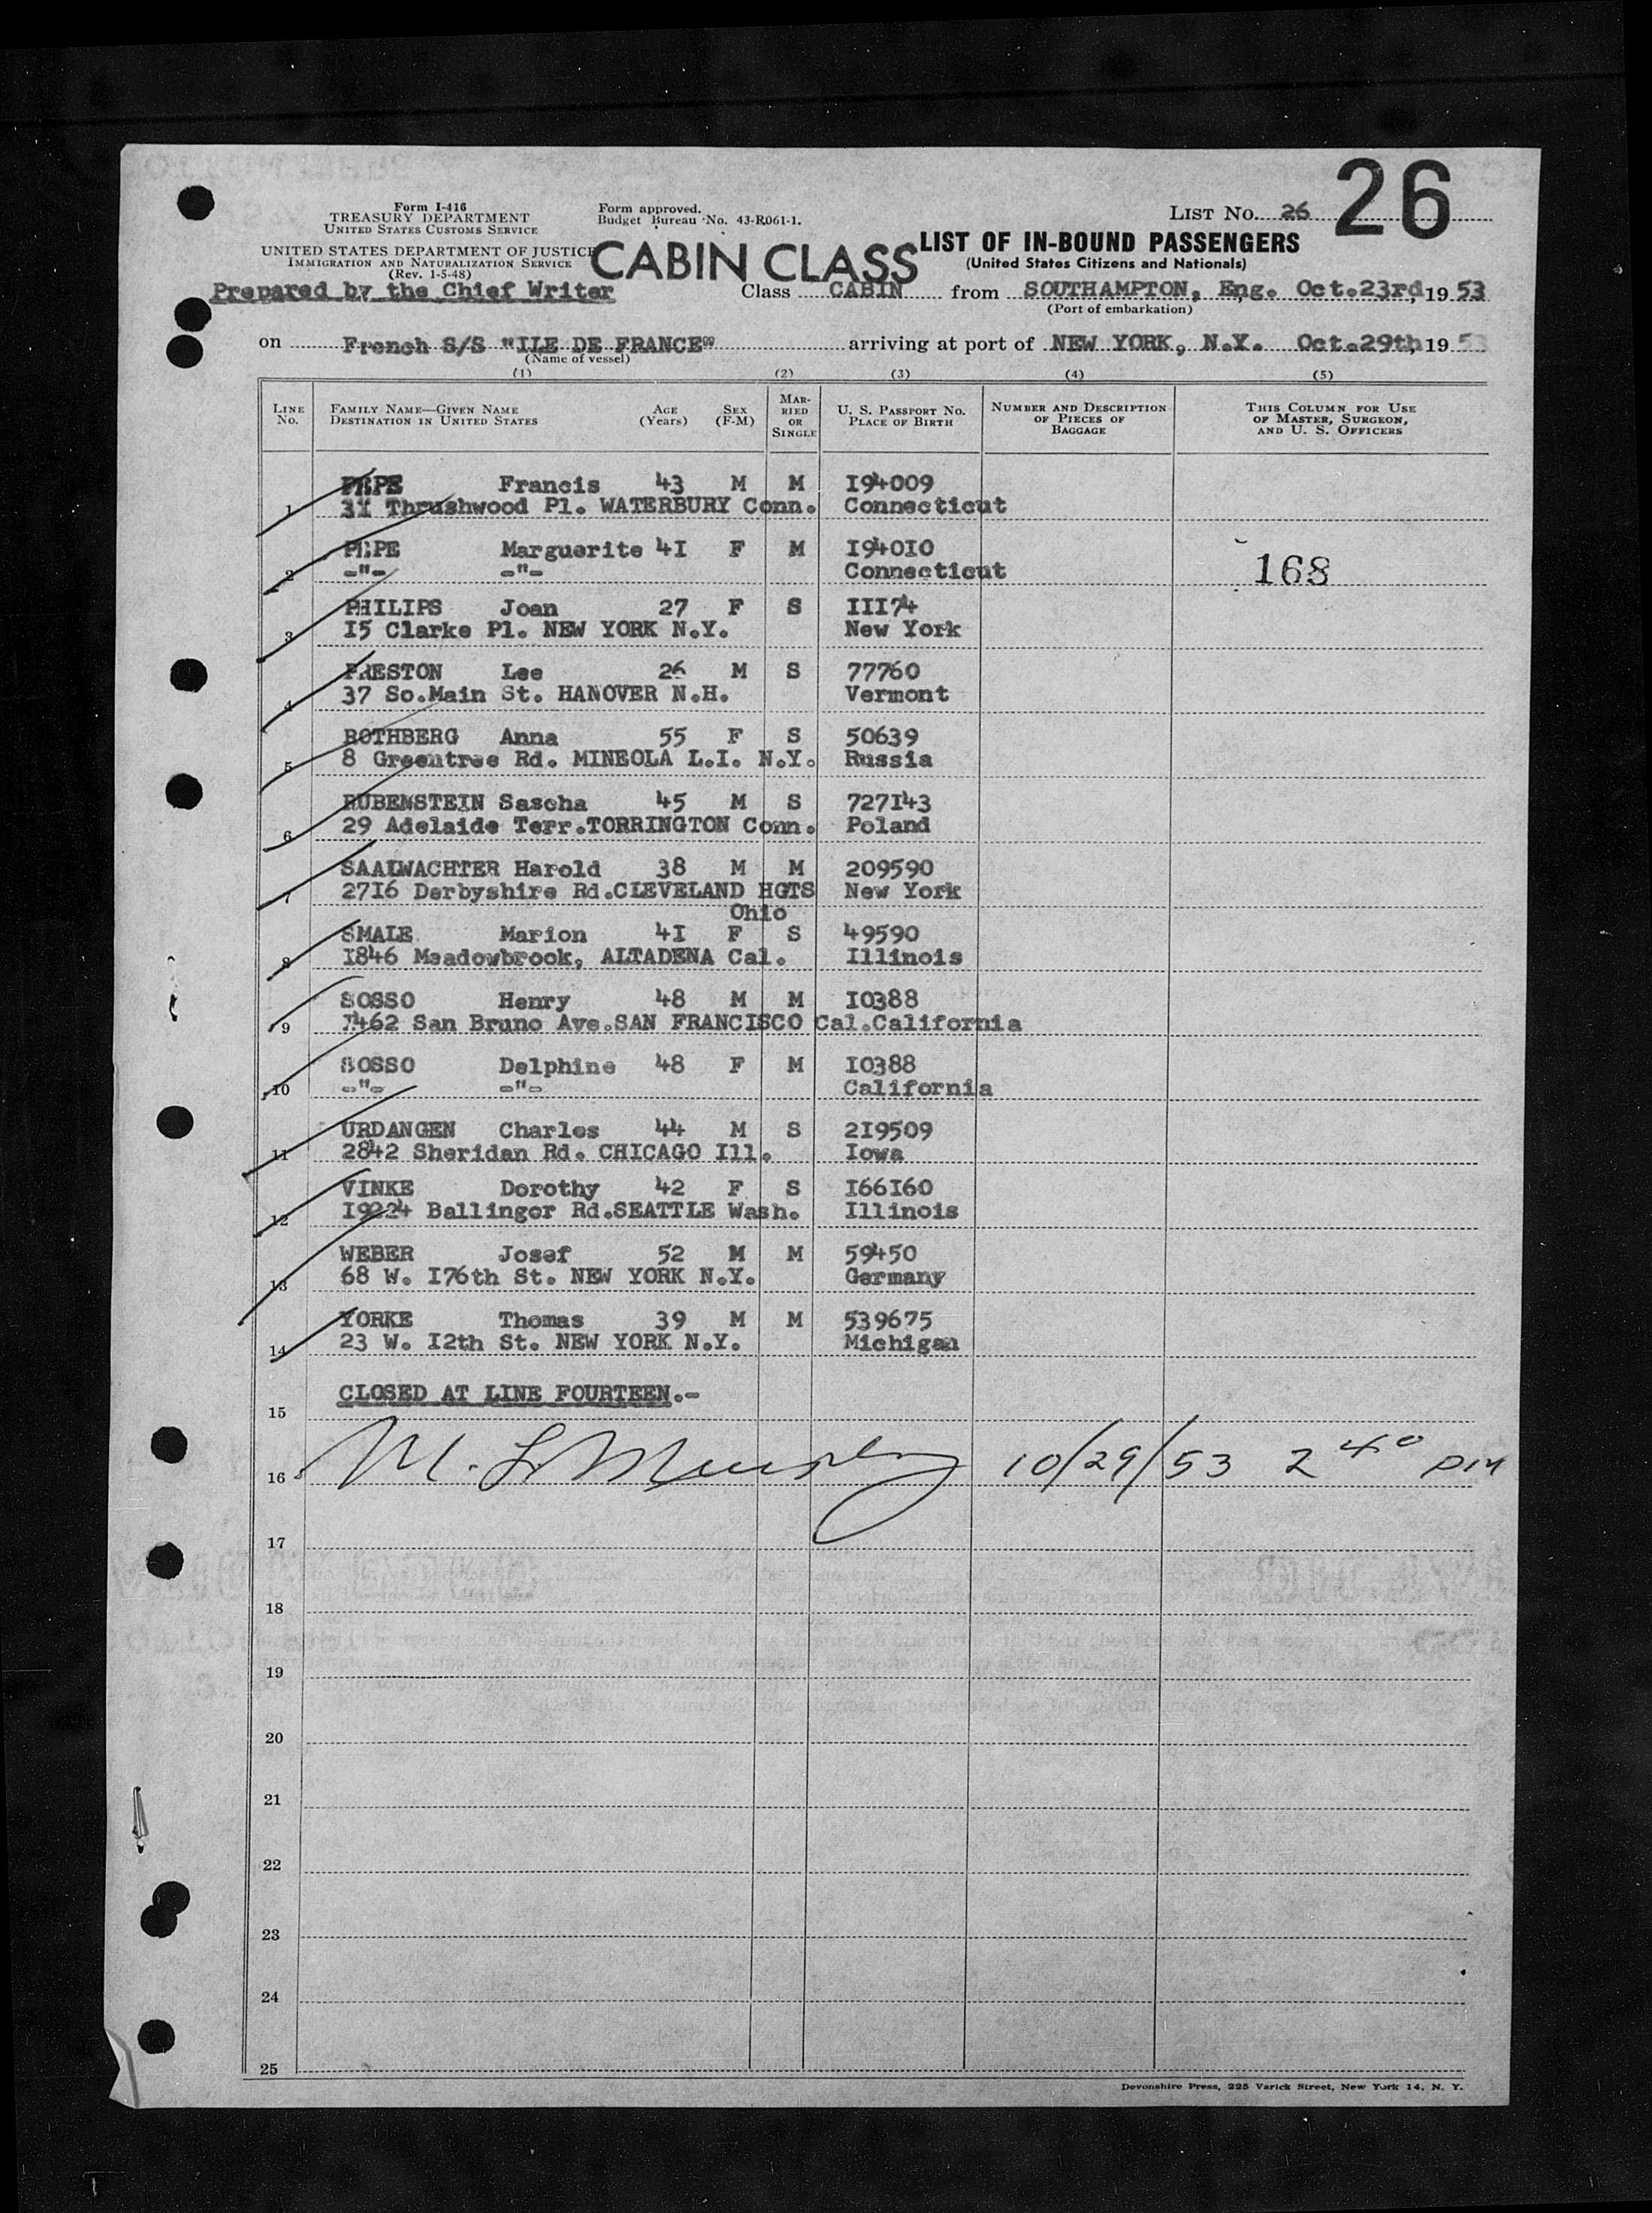 26
Form I-416
TREASURY DEPARTMENT
UNITED STATES CUSTOMS SERVICE
Form approved.
Budget Bureau No. 43-R061-1.
LIST No. 26
UNITED STATES DEPARTMENT OF JUSTICE
IMMIGRATION AND NATURALIZATION SERVICE
(Rev. 1-5-48)
CABIN CLASS
LIST OF IN-BOUND PASSENGERS
(United States Citizens and Nationals)
Prepared by the Chief Writer
Class CABIN from SOUTHAMPTON, Eng. Oct.23rd, 19 53
(Port of embarkation)
on French S/S "ILE DE FRANCE" arriving at port of NEW YORK, N.Y. Oct.29th, 19 53
(Name of vessel)
(1) (2) (3) (4) (5)
LINE No. FAMILY NAME—GIVEN NAME DESTINATION IN UNITED STATES AGE (Years) SEX (F-M) MARRIED OR SINGLE U. S. PASSPORT No. PLACE OF BIRTH NUMBER AND DESCRIPTION OF PIECES OF BAGGAGE THIS COLUMN FOR USE OF MASTER, SURGEON, AND U. S. OFFICERS
Francis 43 M M I94009
1 Thrushwood Pl. WATERBURY Conn. Connecticut
Marguerite 4I F M I940I0
2 -"- -"- Connecticut 168
PHILIPS Joan 27 F S III74
3 I5 Clarke Pl. NEW YORK N.Y. New York
PRESTON Lee 26 M S 77760
4 37 So.Main St. HANOVER N.H. Vermont
ROTHBERG Anna 55 F S 50639
5 8 Greentree Rd. MINEOLA L.I. N.Y. Russia
RUBENSTEIN Sascha 45 M S 727I43
6 29 Adelaide Terr.TORRINGTON Conn. Poland
SAALWACHTER Harold 38 M M 209590
7 27I6 Derbyshire Rd.CLEVELAND HGTS New York
Ohio
SMALE Marion 4I F S 49590
8 I846 Meadowbrook, ALTADENA Cal. Illinois
SOSSO Henry 48 M M I0388
9 I462 San Bruno Ave.SAN FRANCISCO Cal.California
SOSSO Delphine 48 F M I0388
10 -"- -"- California
URDANGEN Charles 44 M S 2I9509
11 2842 Sheridan Rd. CHICAGO Ill. Iowa
VINKE Dorothy 42 F S I66I60
12 I9224 Ballinger Rd.SEATTLE Wash. Illinois
WEBER Josef 52 M M 59450
13 68 W. I76th St. NEW YORK N.Y. Germany
YORKE Thomas 39 M M 539675
14 23 W. I2th St. NEW YORK N.Y. Michigan
CLOSED AT LINE FOURTEEN.-
15
16 M. L. Murphy 10/29/53 2 40 pm
17
18
19
20
21
22
23
24
25
Devonshire Press, 225 Varick Street, New York 14, N. Y.